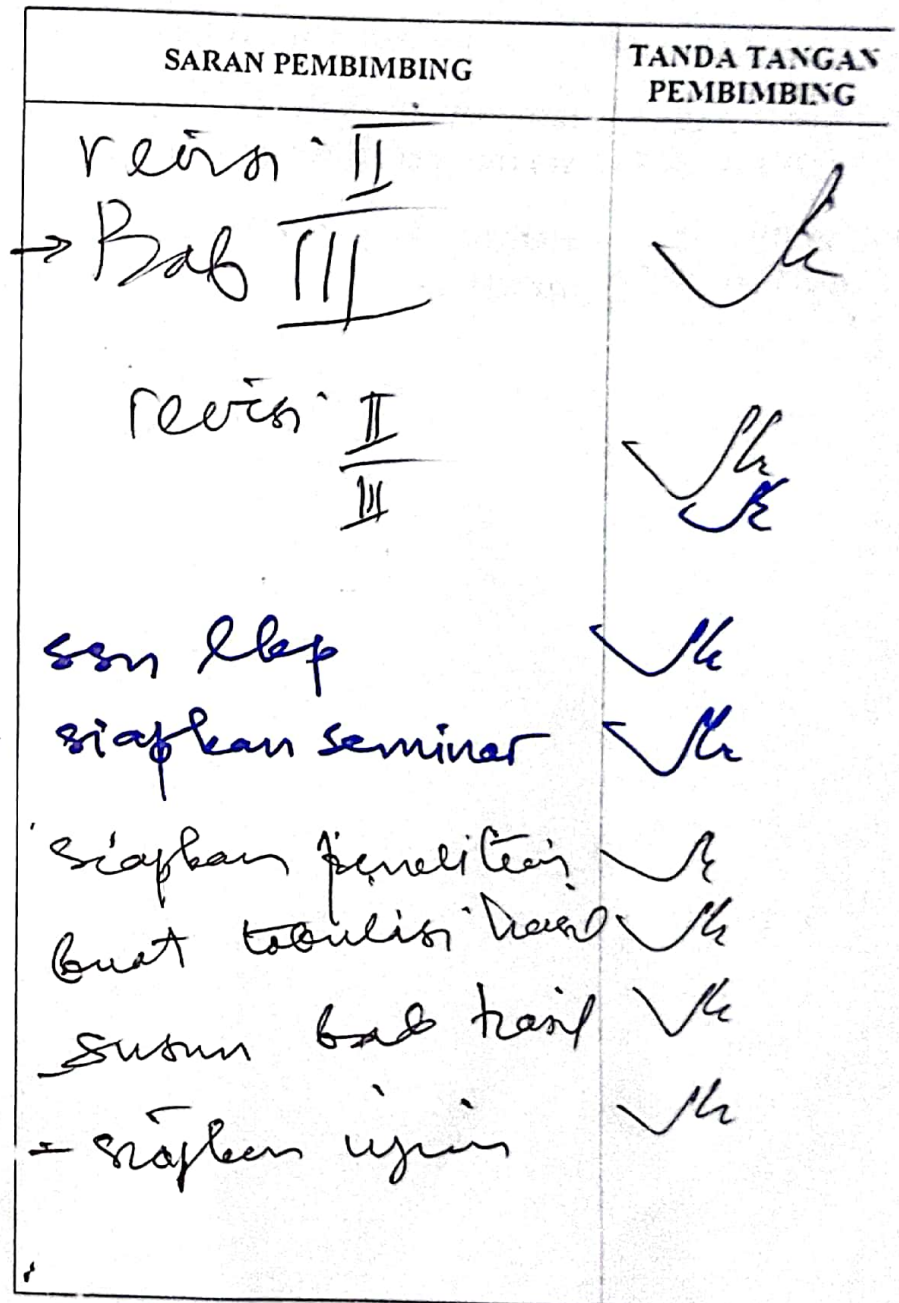 SARAN PEMBIMBING
TANDA TANGAN
PEMBIMBING
revisi II
→ Bab III
revisi II
III
ssn lkp
siapkan seminar
siapkan penelitian
buat tabulasi hasil
susun bab hasil
- siapkan ujian